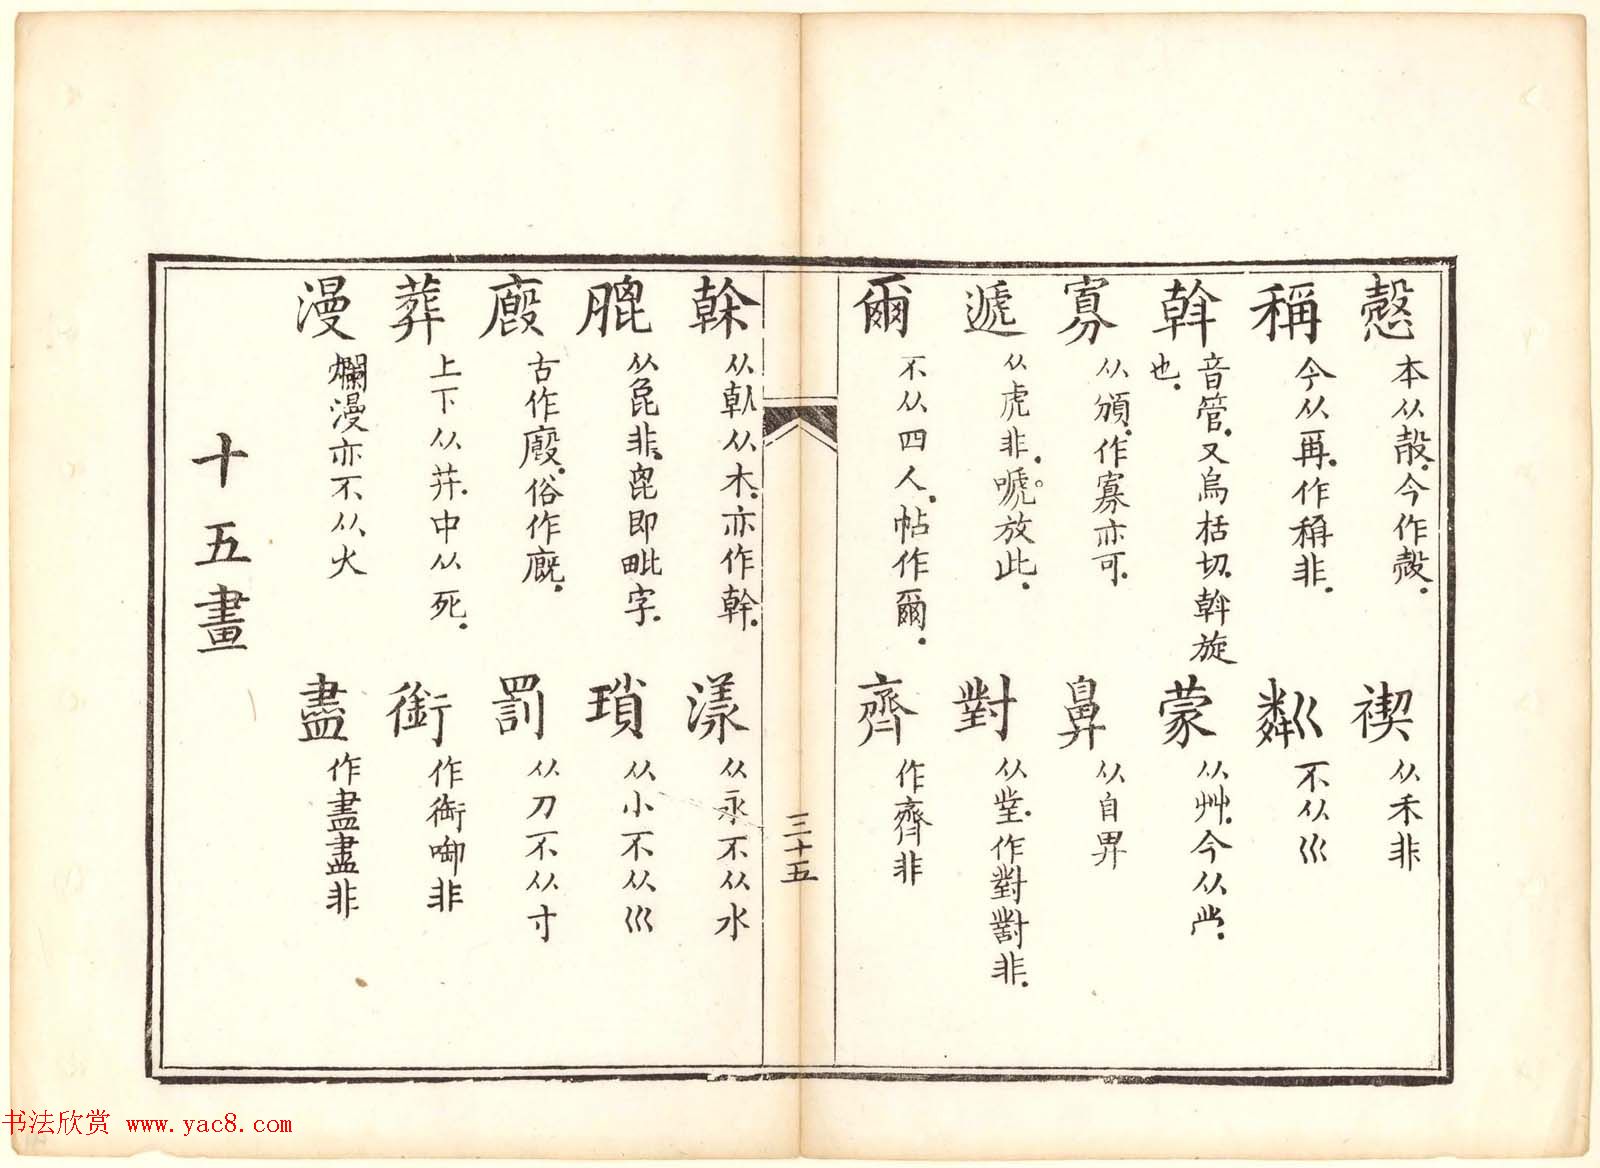 愨 本从殻.今作殼. 禊 从禾非
稱 今从再.作稱非. 粼巛 不从巛
斡 音管.又烏栝切.斡旋也. 蒙 从艸.今从䒑.
寡 从頒.作寡亦可. 鼻 从自畀
遞 从虎非.嗁放此. 對 从丵.作對對非.
爾 不从四人.帖作爾. 齊 作齊非
三十五
榦 从倝从木.亦作幹. 漾 从永不从水
膍 从昆非.毘即毗字. 瑣 从小不从巛
廄 古作廏.俗作廐. 罰 从刀不从寸
葬 上下从茻.中从死. 銜 作衘啣非
漫 爛漫亦不从火 盡 作盡盡非
十五畫
书法欣赏 www.yac8.com